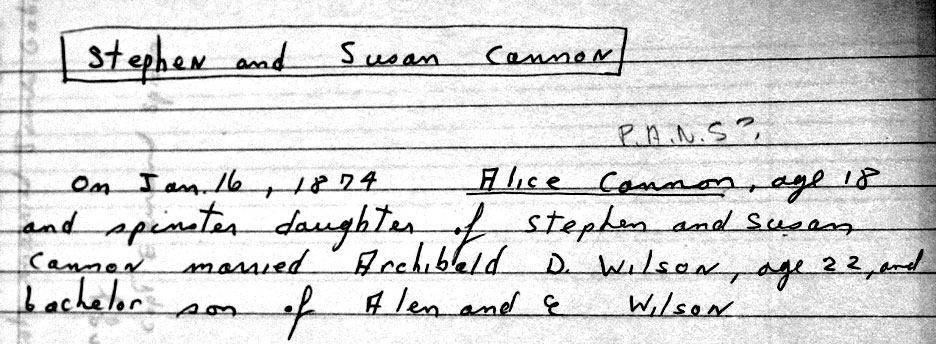 Stephen and Susan Cannon
P.A.N.S?
On Jan. 16, 1874 Alice Cannon, age 18
and spinster daughter of Stephen and Susan
Cannon married Archibald D. Wilson, age 22, and
bachelor son of Alen and E Wilson